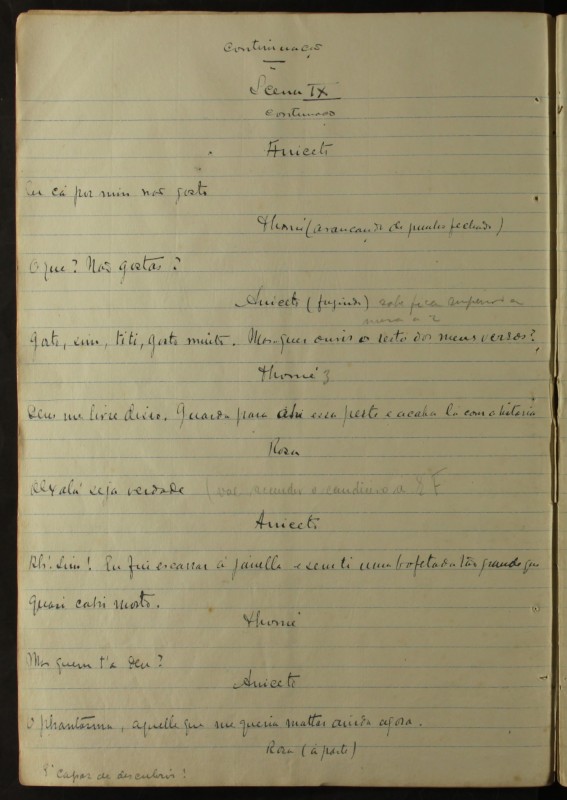 Continuação
Scena IX
continuação
Aniceto
Eu cá por mim não gosto
Thomé (avançando de punhos fechados)
O que? Não gostas?
Aniceto (fugindo) sobe fica
mesa a 2
Gosto, sim, titi, gosto muito. Mas quer ouvir o resto dos meus versos?
Thomé 3
Deus me livre disso. Guarda para ahi essa peste e acaba lá com a historia
Rosa
Oxalá seja verdade (vae accender o candieiro a E F
Aniceto
Ah! Sim! Eu fui escarrar á janella e senti uma bofetada tão grande que
quasi cahi morto.
Thomé
Mas quem t'a deu?
Aniceto
O phantasma, aquelle que me queria mattar ainda agora.
Rosa (á parte)
É capaz de descubrir!